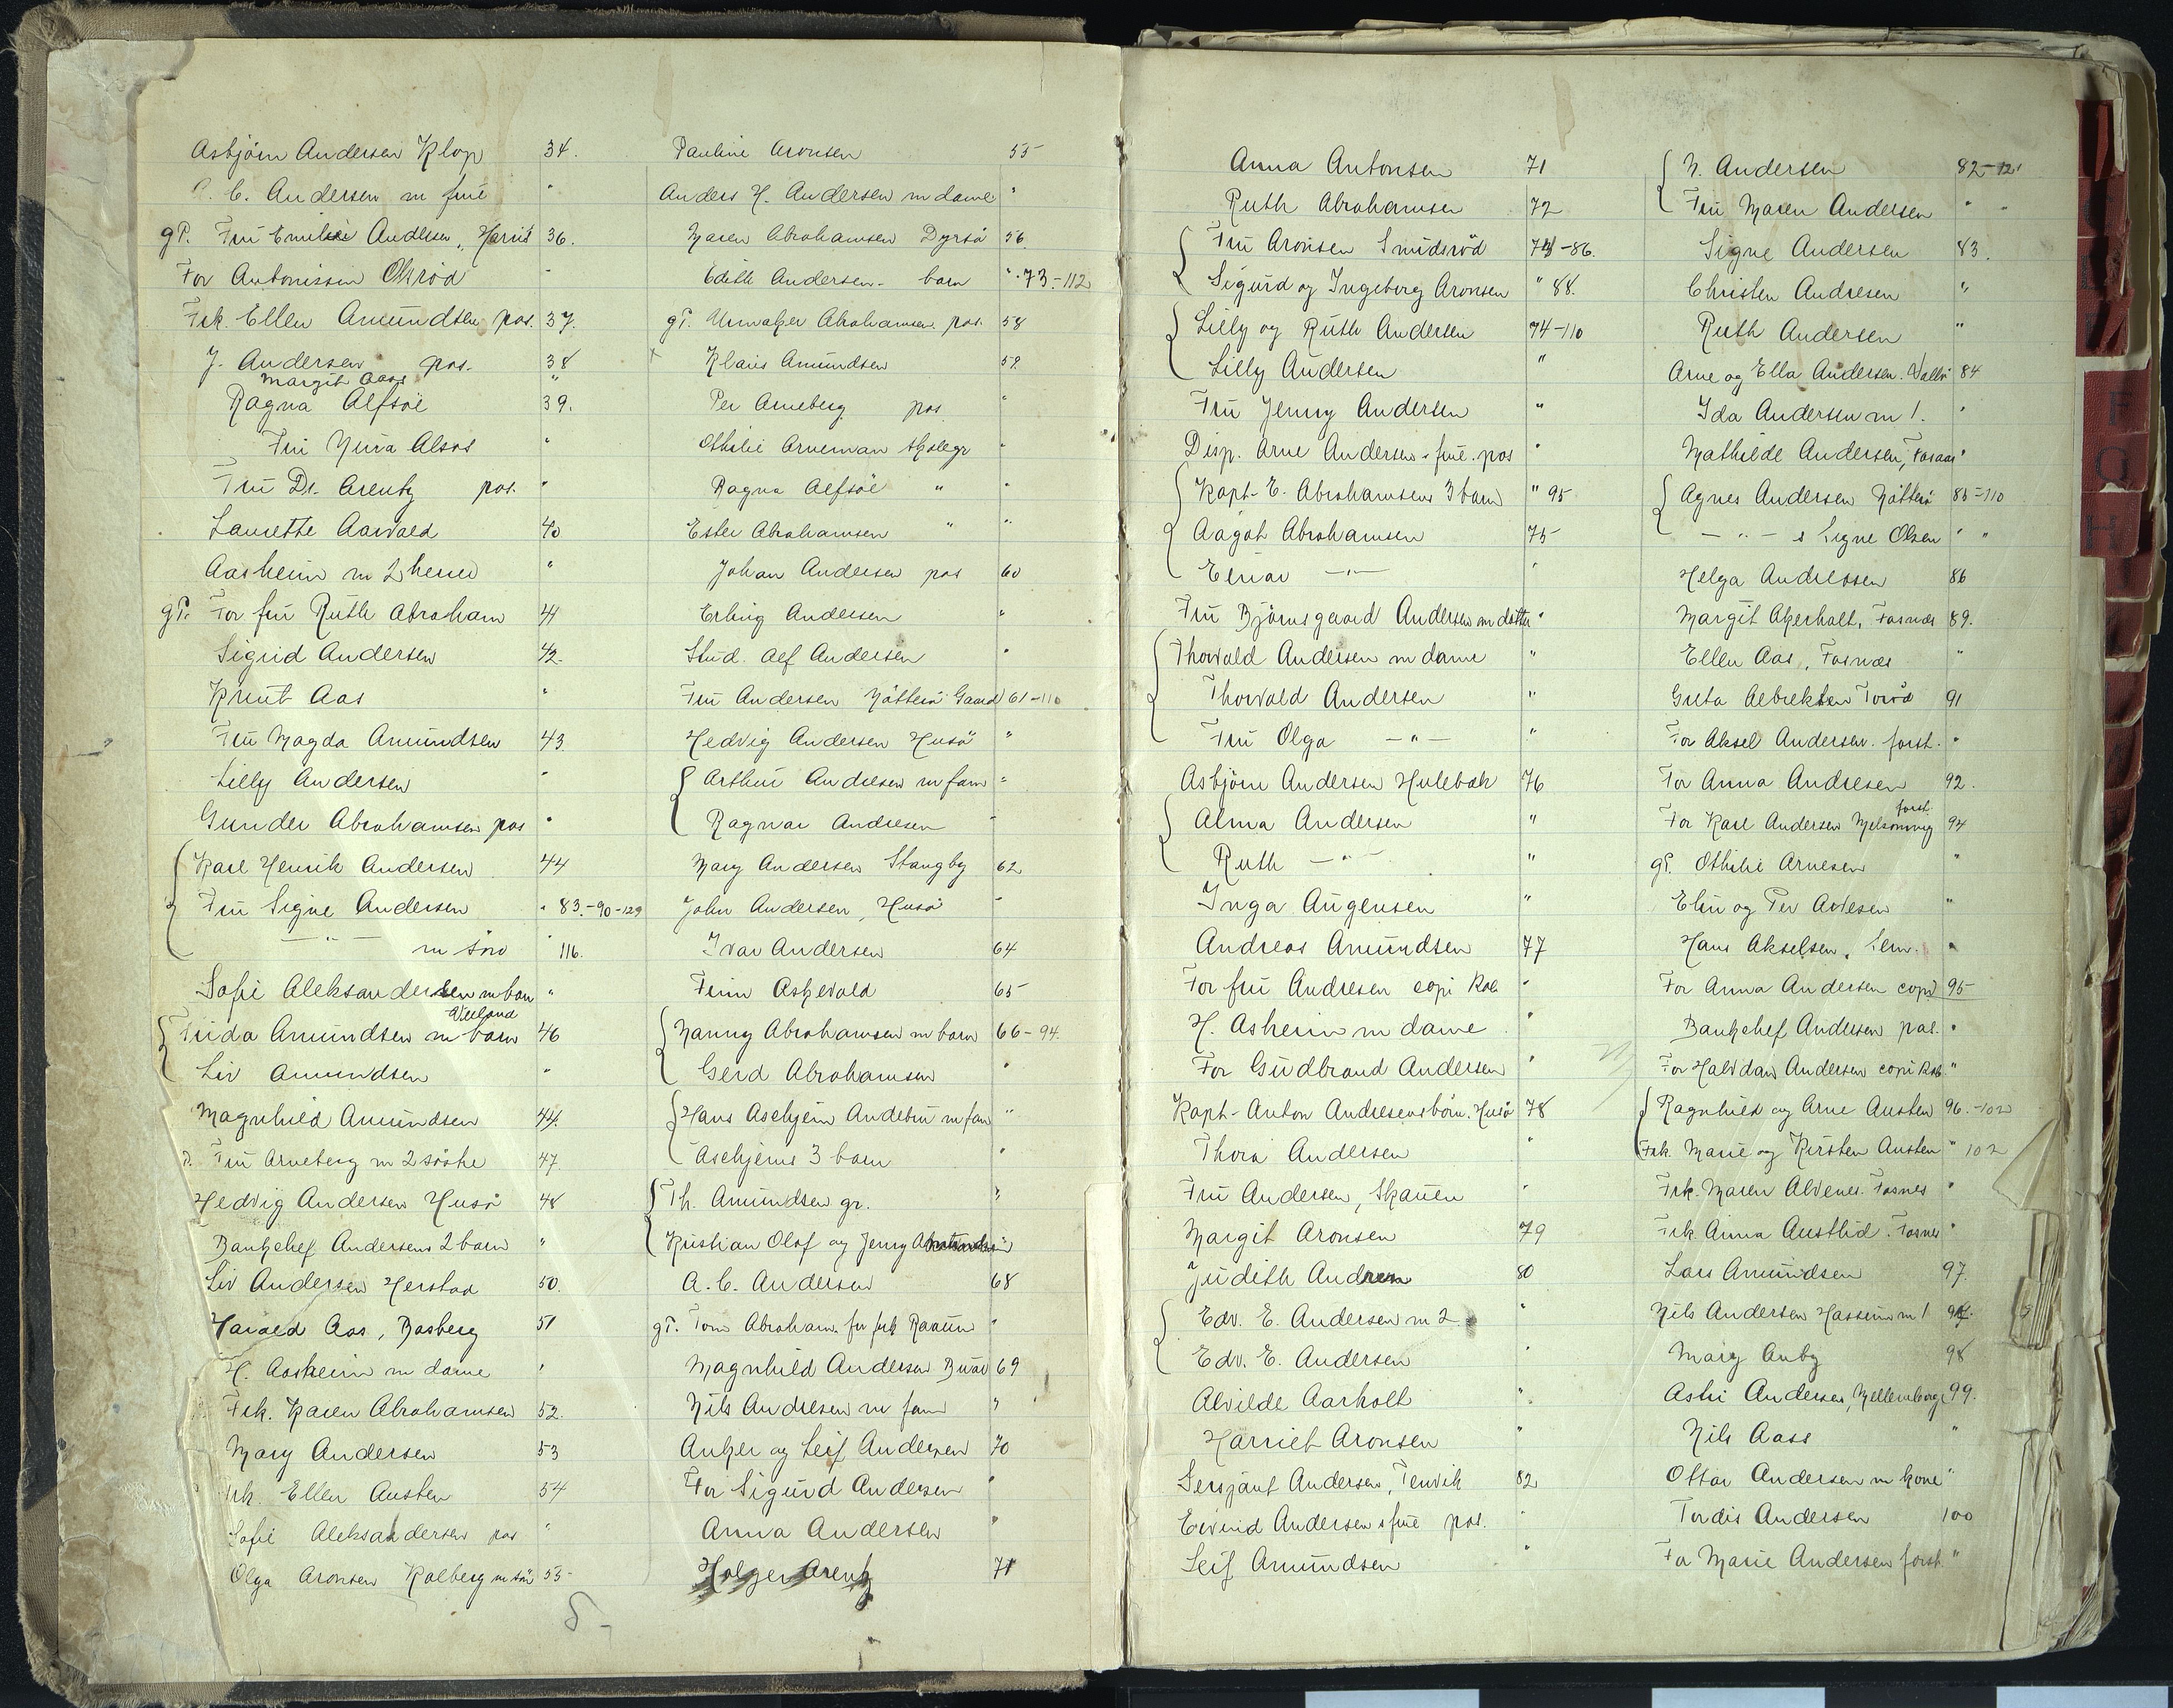 Asbjörn Andersen Klop 34.
C. Andersen m frue "
gP. Frü Emilie Andersen, Havnö 36.
For Antonissen Olsröd "
Frk. Ellen Amündsen pos. 37.
J. Andersen pos. 38
Margit Aass "
Ragna Alfsöe 39.
Frü Alsos "
Frü Dr. Arentz pos. "
Laurette Aarvold 40
Aasheim m 2 herrer "
gP. For frü Rüth Abraham 41
Sigrid Andersen 42.
Knut Aas "
Frü Magda Amündsen 43
Lilly Andersen "
Gunder Abrahamsen pos "
Karl Henrik Andersen 44
Frü Signe Andersen " 83.-90-129
— " — m sön " 116.
Sofie Aleksandersen m barn "
Frida Amündsen m barn 46
Liv Amundsen "
Magnhild Amündsen 44.
Frü Arneberg m 2 söstre 47.
Hedvig Andersen Husö 48
Bankchef Andersens 2 barn "
Liv Andersen Herstad 50.
Harald Aas, Basberg 51
H. Aasheim m dame "
Frk. Karen Abrahamsen 52.
Mary Andersen 53
Frk. Ellen Austen 54
Sofie Aleksandersen pos "
Olga Aronsen Kolberg m sön 55-
5-
Pauline Aronsen 55
Anders H. Andersen m dame "
Maren Abrahamsen Dyrsö 56.
Edith Andersen - barn " 73.-112
gP. Abrahamsen pos. 58
Klaus Amündsen 59
Per Arneberg pos "
Othilie Arneman skolegr "
Ragna Alfsöe " "
Ester Abrahamsen " "
Johan Andersen pos 60
Erling Andersen "
Stud. Alf Andersen "
Frü Andersen Nötterö Gaard 61-110
Hedvig Andersen Husö "
Arthur Andresen m fam "
Ragnar Andresen "
Mary Andersen Stangby 62
John Andersen, Husö "
Ivar Andersen 64
Finn Askevold 65
Nanny Abrahamsen m barn 66-94.
Gerd Abrahamsen "
Hans Aschjem Andebu m fam "
Aschjems 3 barn "
Th. Amündsen gr. "
Kristian Olof og Jenny
A. C. Andersen 68
gP. Tom Abraham. for frk Raaum "
Magnhild Andersen 69
Nils Andresen m fam "
Anker og Leif Andersen 70
For Sigurd Andersen "
Anna Andersen "
Holger Arentz 71
Anna Antonsen 71
Ruth Abrahamsen 72
Frü Aronsen Smidsröd 74-86.
Sigurd og Ingeborg Aronsen " 88.
Lilly og Rüth Andersen 74-110
Lilly Andersen "
Frü Jenny Andersen "
Disp. Arne Andersen & frue. pos "
Kapt- E. Abrahamsens 3 barn " 95
Aagot Abrahamsen 75
Einar —"— "
Frü Bjömsgaard Andersen m datter "
Thorvald Andersen m dame "
Thorvald Andersen "
Frü Olga —"— "
Asbjörn Andersen Hulebak 76
Alma Andersen "
Ruth —"— "
Inga Augensen "
Andreas Amündsen 77
For frü Andresen copi Kab "
H. Asheim m dame "
For Güdbrand Andersen "
Kapt- Anton Andresens börn. Husö 78
Thora Andersen "
Frü Andersen, Skauen "
Margit Aronsen 79
Judith Andersen 80
Edv. E. Andersen m 2 "
Edv. E. Andersen "
Alvilde Aarholt "
Harriet Aronsen "
Sersjant Andersen, Tenvik 82
Eivind Andersen & frue pos. "
Leif Amündsen "
N. Andersen 82-121
Frü Maren Andersen " "
Signe Andersen 83.
Christen Andresen "
Ruth Andersen "
Arne og Ella Andersen. Vallö 84
Ida Andersen m 1. "
Mathilde Andersen, "
Agnes Andersen Nötterö 85-110
— " — & Signe Olsen " "
Helga Andressen 86
Margit Akerholt, Fosnæs 89.
Ellen Aas, Fosnæs "
Greta Albrektsen Toröd 91
For Aksel Andersen. forst. "
For Anna Andresen 92.
For Karl Andersen Melsomvig forst. 94
gP. Othilie Arnesen "
Elin og Per Arvesen "
Hans Akselsen, Sem. "
For Anna Andersen copi 95-
Bankchef Andersen pos. "
For Halvdan Andersen copi Kab. "
Ragnhild og Arne Austen 96.-102
Frk. Marie og Kirsten Austen " 102
Frk. Maren Alvenes. Fosnes "
Frk. Anna Austlid. Fosnes "
Lars Amündsen 97.
Nils Andersen Hassum m 1 94.
Mary Auby 98
Astri Andersen, Mellemborg 99.
Nils Aass "
Ottar Andersen m kone "
Tordis Andersen 100
For Marie Andersen forst "
F
H